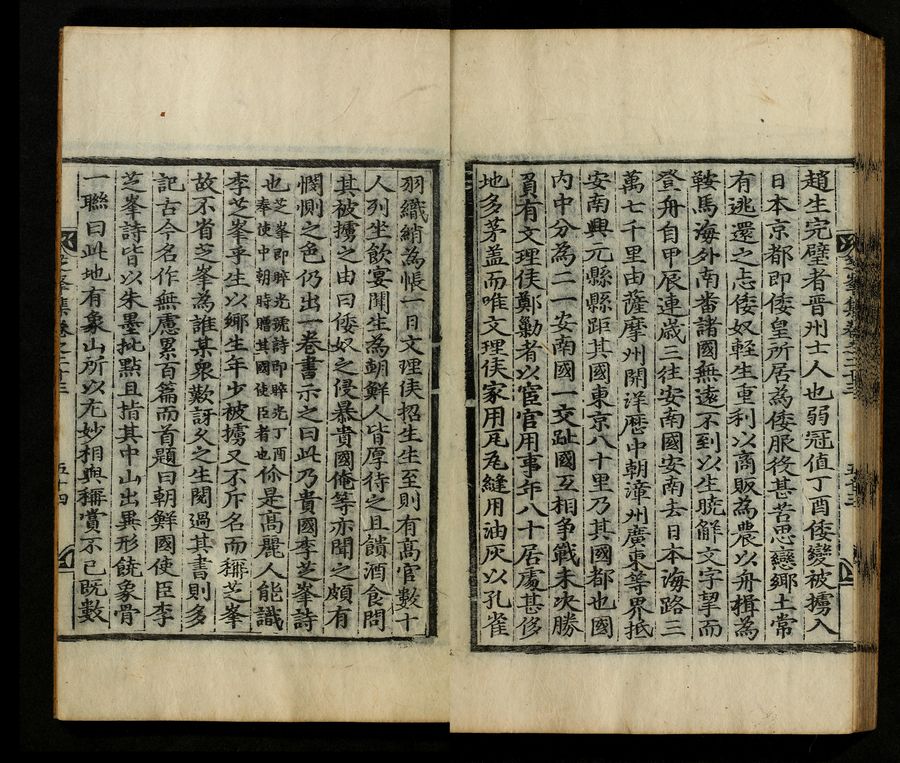 趙生完璧者晋州士人也弱冠值丁酉倭變被擄入
日本京都即倭皇所居為倭服役甚苦思戀鄉土常
有逃還之志倭奴輕生重利以商販為農以舟楫為
鞍馬海外南番諸國無遠不到以生曉解文字挈而
登舟自甲辰連歲三往安南國安南去日本海路三
萬七千里由薩摩州開洋歷中朝漳州廣東等界抵
安南興元縣縣距其國東京八十里乃其國都也國
內中分為二一安南國一交趾國互相爭戰未决勝
負有文理侯鄭勦者以宦官用事年八十居處甚侈
地多茅盖而唯文理侯家用瓦瓦縫用油灰以孔雀
羽織綃為帳一日文理侯招生生至則有高官數十
人列坐飲宴聞生為朝鮮人皆厚待之且饋酒食問
其被擄之由曰倭奴之侵暴貴國俺等亦聞之頗有
憫惻之色仍出一卷書示之曰此乃貴國李芝峯詩
也芝峯即睟光號詩即睟光丁酉奉使中朝時贈其國使臣者也你是高麗人能識
李芝峯乎生以鄉生年少被擄又不斥名而稱芝峯
故不省芝峯為誰某衆歎訝久之生閱過其書則多
記古今名作無慮累百篇而首題曰朝鮮國使臣李
芝峯詩皆以朱墨批點且指其中山出異形饒象骨
一聯曰此地有象山所以尤妙相與稱賞不已既數
芝峯集卷之二十三
五十四